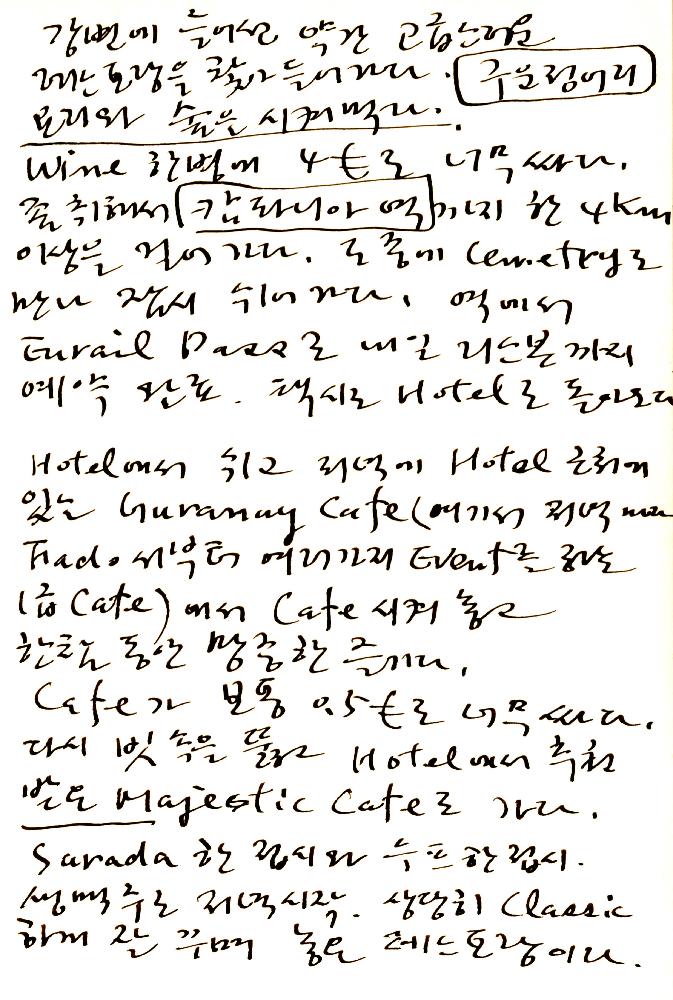 강변에 들어선 약간 고급스러운
레스토랑을 찾아 들어가다. 구운정어리
요리와 술을 시켜먹다.
Wine 한병에 4€로 너무 싸다.
줄 취해서 캄파니아 역까지 한 4Km
이상을 걸어가다. 도중에 Cemetry도
만나 잠시 쉬어가다. 역에서
Eurail Pass로 내일 리스본까지
예약 완료. 택시로 Hotel로 돌아오다
Hotel에서 쉬고 저녁에 Hotel 근처에
있는 Guarany Cafe(여기서 저녁마다
Fado서부터 여러가지 Event를 하는
Cafe)에서 Cafe 시켜 놓고
한참 동안 망중한 즐기다.
Cafe가 보통 0.5€로 너무 싸다.
다시 빗속을 뚫고 Hotel에서 추천
받은 Majestic Cafe로 가다.
Sarada 한 접시와 수프 한접시.
생맥주로 저녁시작. 상당히 Classic
하게 잘 꾸며 놓은 레스토랑이다.